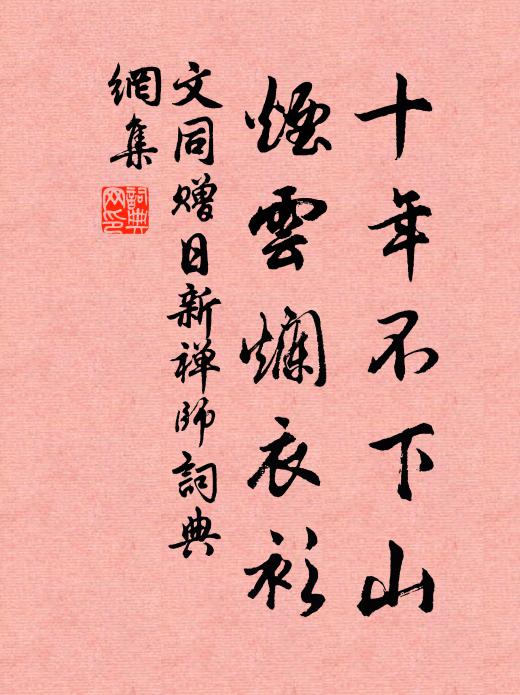 十年不下山
煙雲爛衣衫
文同贈日新禅師詞典
網集
詞典
网印